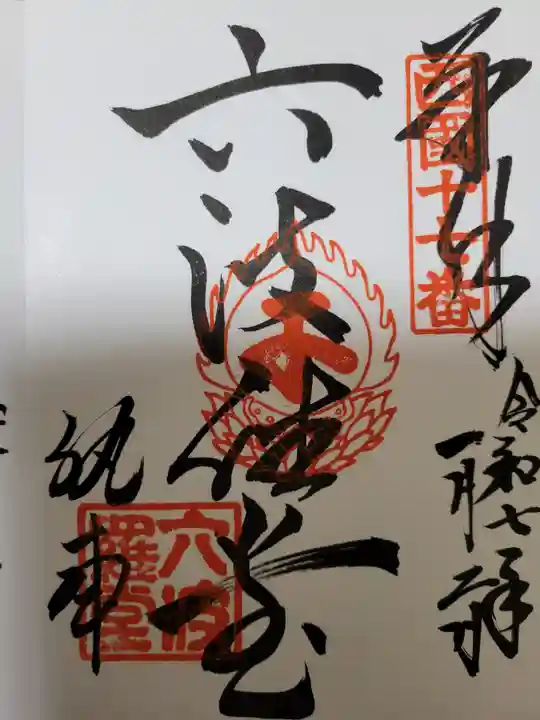 奉拝
西國十七番
令和七年
一月二日
六波羅堂
六波羅堂
執事